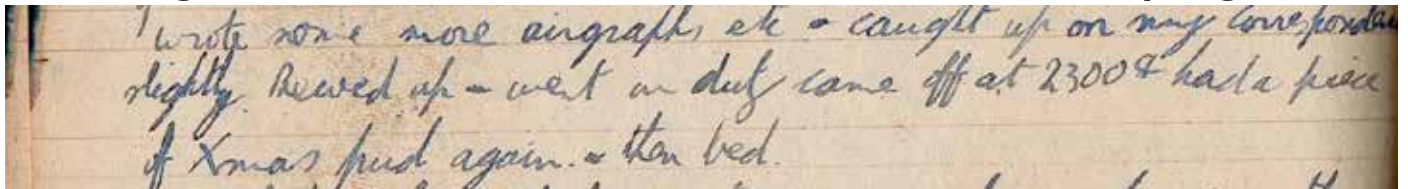 wrote some more airgraphs etc - caught up on my correspondence
slightly. Brewed up - went on duty came off at 2300 & had a piece
of Xmas pud again. - then bed.